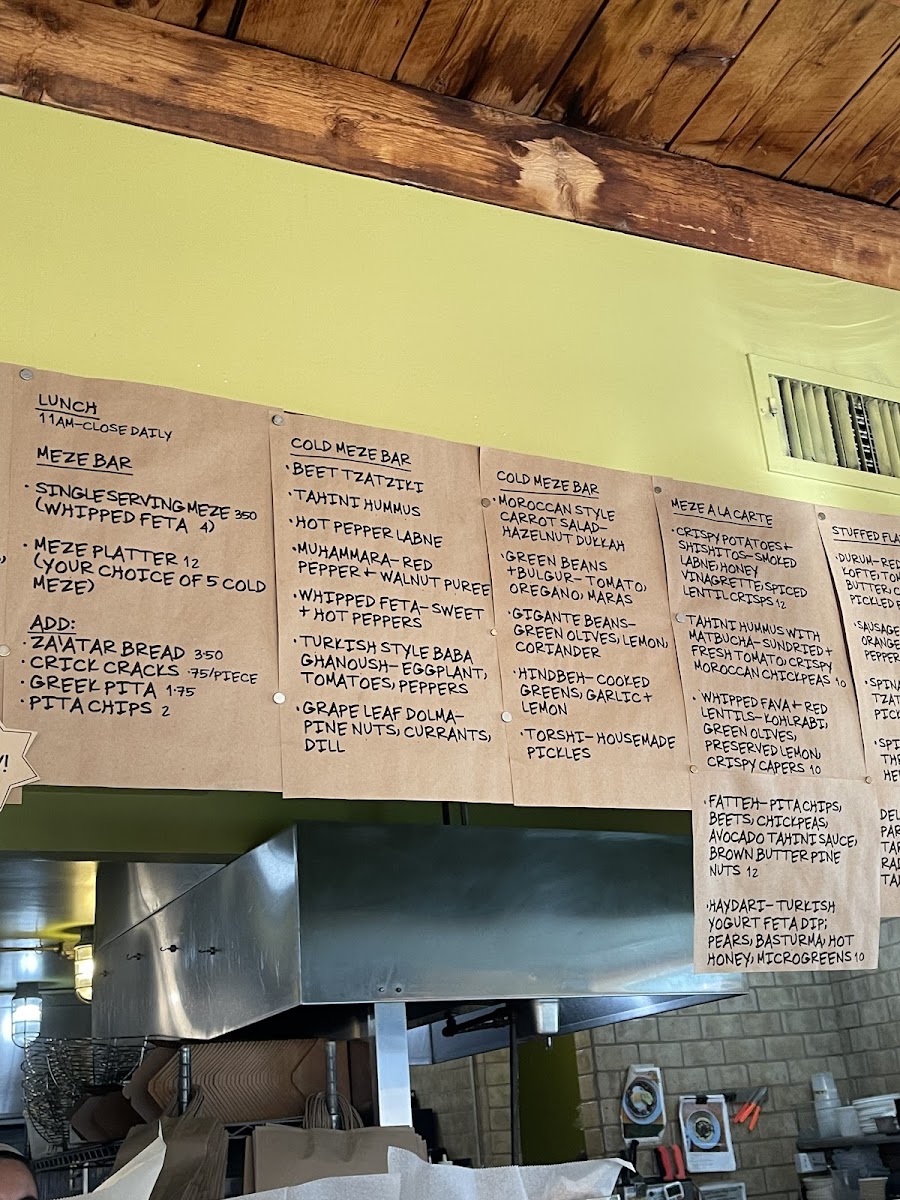 LUNCH
11AM-CLOSE DAILY
MEZE BAR
· SINGLE SERVING MEZE 3.50
(WHIPPED FETA 4)
· MEZE PLATTER 12
(YOUR CHOICE OF 5 COLD
MEZE)
ADD:
· ZA'ATAR BREAD 3.50
· CRICK CRACKS .75/PIECE
· GREEK PITA 1.75
· PITA CHIPS 2
COLD MEZE BAR
· BEET TZATZIKI
· TAHINI HUMMUS
· HOT PEPPER LABNE
· MUHAMMARA-RED
PEPPER + WALNUT PUREE
· WHIPPED FETA-SWEET
+ HOT PEPPERS
· TURKISH STYLE BABA
GHANOUSH-EGGPLANT,
TOMATOES, PEPPERS
· GRAPE LEAF DOLMA-
PINE NUTS, CURRANTS,
DILL
COLD MEZE BAR
· MOROCCAN STYLE
CARROT SALAD-
HAZELNUT DUKKAH
· GREEN BEANS
+ BULGUR-TOMATO,
OREGANO, MARAS
· GIGANTE BEANS-
GREEN OLIVES, LEMON,
CORIANDER
· HINDBEH-COOKED
GREENS, GARLIC +
LEMON
· TORSHI-HOUSEMADE
PICKLES
MEZE A LA CARTE
· CRISPY POTATOES +
SHISHITOS-SMOKED
LABNE, HONEY
VINAGRETTE, SPICED
LENTIL CRISPS 12
· TAHINI HUMMUS WITH
MATBUCHA-SUNDRIED +
FRESH TOMATO, CRISPY
MOROCCAN CHICKPEAS 10
· WHIPPED FAVA + RED
LENTILS-KOHLRABI,
GREEN OLIVES,
PRESERVED LEMON,
CRISPY CAPERS 10
· FATTEH-PITA CHIPS,
BEETS, CHICKPEAS,
AVOCADO TAHINI SAUCE,
BROWN BUTTER PINE
NUTS 12
· HAYDARI-TURKISH
YOGURT FETA DIP;
PEARS, BASTURMA, HOT
HONEY, MICROGREENS 10
STUFFED FLA
· DURUM-RED
KOFTE, TOM
BUTTER, C
PICKLED
· SAUSAGE
ORANGE
PEPPER
· SPINA
TZAT
PICK
· SPI
THR
HE
DEL
PAR
TAR
RAI
TA
Y!